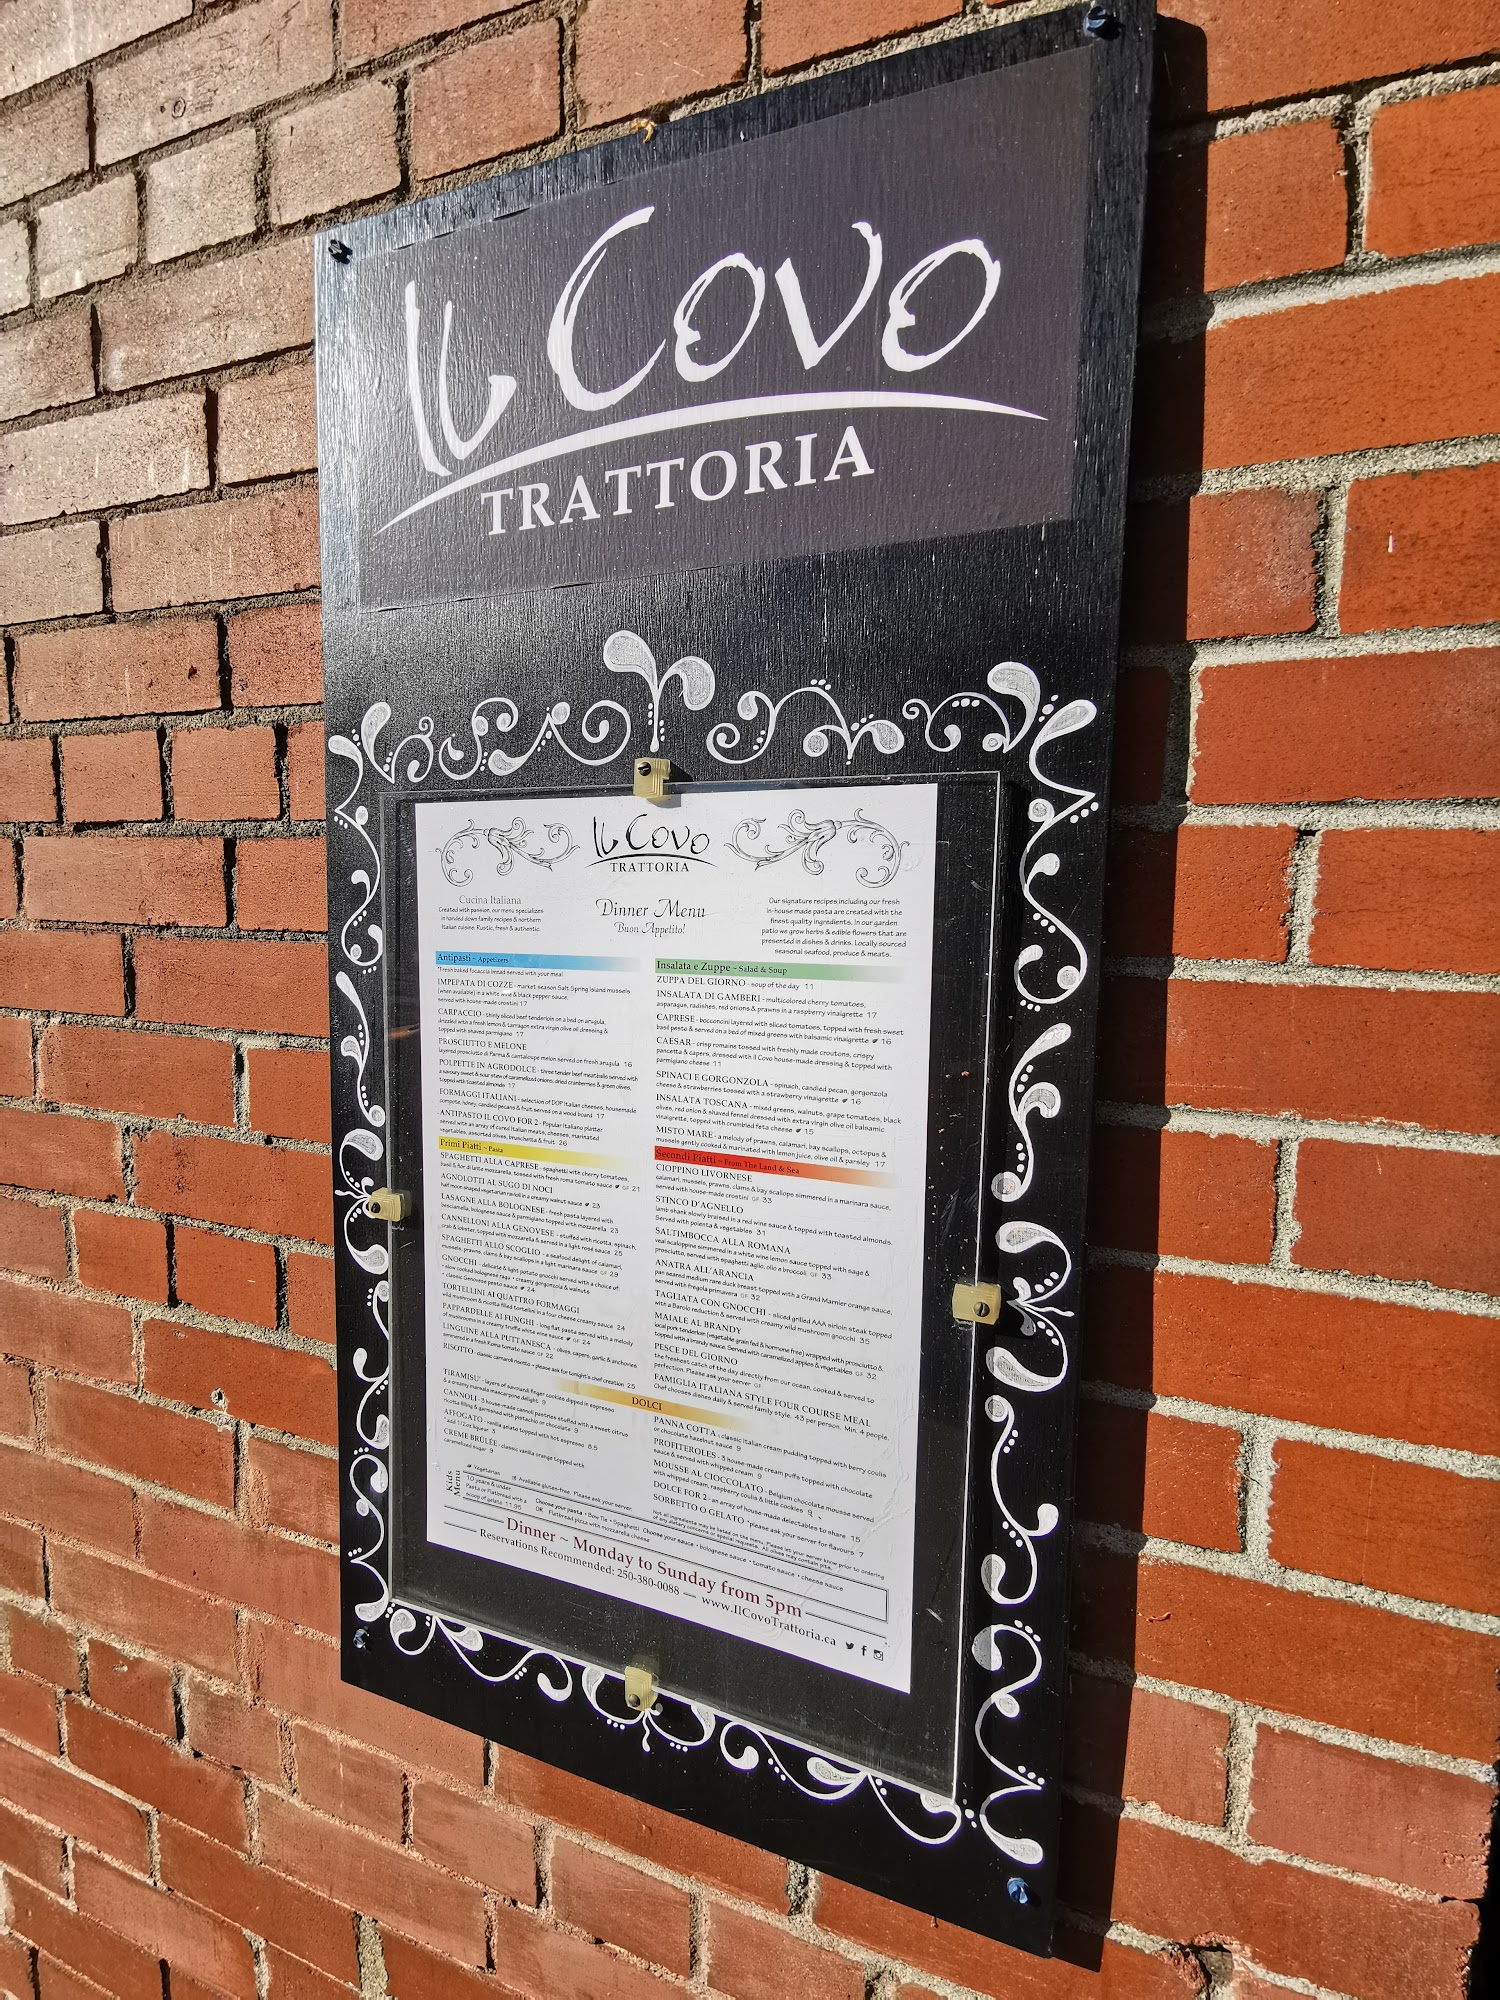 Il Covo
TRATTORIA
Il Covo
TRATTORIA
Cucina Italiana
Created with passion, our menu specializes
in handed down family recipes & northern
Italian cuisine. Rustic, fresh & authentic.
Dinner Menu
Buon Appetito!
Our signature recipes including our fresh
in-house made pasta are created with the
finest quality ingredients. In our garden
patio we grow herbs & edible flowers that are
presented in dishes & drinks. Locally sourced
seasonal seafood, produce & meats.
Antipasti ~ Appetizers
*Fresh baked focaccia bread served with your meal
IMPEPATA DI COZZE - market season Salt Spring Island mussels
(when available) in a white wine & black pepper sauce,
served with house-made crostini 17
CARPACCIO - thinly sliced beef tenderloin on a bed on arugula,
drizzled with a fresh lemon & tarragon extra virgin olive oil dressing &
topped with shaved parmigiano 17
PROSCIUTTO E MELONE
layered prosciutto di Parma & cantaloupe melon served on fresh arugula 16
POLPETTE IN AGRODOLCE - three tender beef meatballs served with
a savoury sweet & sour stew of caramelized onions, dried cranberries & green olives,
topped with toasted almonds 17
FORMAGGI ITALIANI - selection of DOP Italian cheeses, housemade
compote, honey, candied pecans & fruit served on a wood board 17
ANTIPASTO IL COVO FOR 2 - Popular Italiano platter
served with an array of cured Italian meats, cheeses, marinated
vegetables, assorted olives, bruschetta & fruit 26
Primi Piatti ~ Pasta
SPAGHETTI ALLA CAPRESE - spaghetti with cherry tomatoes,
basil & fior di latte mozzarella, tossed with fresh roma tomato sauce GF 21
AGNOLOTTI AL SUGO DI NOCI
half moon shaped vegetarian ravioli in a creamy walnut sauce 23
LASAGNE ALLA BOLOGNESE - fresh pasta layered with
besciamella, bolognese sauce & parmigiano topped with mozzarella 23
CANNELLONI ALLA GENOVESE - stuffed with ricotta, spinach,
crab & lobster, topped with mozzarella & served in a light rosé sauce 25
SPAGHETTI ALLO SCOGLIO - a seafood delight of calamari,
mussels, prawns, clams & bay scallops in a light marinara sauce GF 29
GNOCCHI - delicate & light potato gnocchi served with a choice of:
* slow cooked bolognese ragu * creamy gorgonzola & walnuts
* classic Genovese pesto sauce 24
TORTELLINI AI QUATTRO FORMAGGI
wild mushroom & ricotta filled tortellini in a four cheese creamy sauce 24
PAPPARDELLE AI FUNGHI - long flat pasta served with a melody
of mushrooms in a creamy truffle white wine sauce GF 24
LINGUINE ALLA PUTTANESCA - olives, capers, garlic & anchovies
simmered in a fresh Roma tomato sauce GF 22
RISOTTO - classic carnaroli risotto - please ask for tonight's chef creation 25
Insalata e Zuppe ~ Salad & Soup
ZUPPA DEL GIORNO - soup of the day 11
INSALATA DI GAMBERI - multicolored cherry tomatoes,
asparagus, radishes, red onions & prawns in a raspberry vinaigrette 17
CAPRESE - bocconcini layered with sliced tomatoes, topped with fresh sweet
basil pesto & served on a bed of mixed greens with balsamic vinaigrette 16
CAESAR - crisp romaine tossed with freshly made croutons, crispy
pancetta & capers, dressed with Il Covo house-made dressing & topped with
parmigiano cheese 11
SPINACI E GORGONZOLA - spinach, candied pecan, gorgonzola
cheese & strawberries tossed with a strawberry vinaigrette 16
INSALATA TOSCANA - mixed greens, walnuts, grape tomatoes, black
olives, red onion & shaved fennel dressed with extra virgin olive oil balsamic
vinaigrette, topped with crumbled feta cheese 15
MISTO MARE - a melody of prawns, calamari, bay scallops, octopus &
mussels gently cooked & marinated with lemon juice, olive oil & parsley 17
Secondi Piatti ~ From The Land & Sea
CIOPPINO LIVORNESE
calamari, mussels, prawns, clams & bay scallops simmered in a marinara sauce,
served with house-made crostini GF 33
STINCO D'AGNELLO
lamb shank slowly braised in a red wine sauce & topped with toasted almonds.
Served with polenta & vegetables 31
SALTIMBOCCA ALLA ROMANA
veal scaloppine simmered in a white wine lemon sauce topped with sage &
prosciutto, served with spaghetti aglio, olio e broccoli GF 33
ANATRA ALL'ARANCIA
pan seared medium rare duck breast topped with a Grand Marnier orange sauce,
served with fregola primavera GF 32
TAGLIATA CON GNOCCHI - sliced grilled AAA sirloin steak topped
with a Barolo reduction & served with creamy wild mushroom gnocchi 35
MAIALE AL BRANDY
local pork tenderloin (vegetable grain fed & hormone free) wrapped with prosciutto &
topped with a brandy sauce. Served with caramelized apples & vegetables GF 32
PESCE DEL GIORNO
the freshest catch of the day directly from our ocean, cooked & served to
perfection. Please ask your server GF
FAMIGLIA ITALIANA STYLE FOUR COURSE MEAL
Chef chooses dishes daily & served family style. 43 per person. Min. 4 people.
DOLCI
TIRAMISU' - layers of savoiardi finger cookies dipped in espresso
& a creamy marsala mascarpone delight 9
CANNOLI - 3 house-made cannoli pastries stuffed with a sweet citrus
ricotta filling & garnished with pistachio or chocolate 9
AFFOGATO - vanilla gelato topped with hot espresso 8.5
*add 1/2oz liqueur 3
CREME BRÛLÉE - classic vanilla orange topped with
caramelized sugar 9
PANNA COTTA - classic Italian cream pudding topped with berry coulis
or chocolate hazelnut sauce 9
PROFITEROLES - 3 house-made cream puffs topped with chocolate
sauce & served with whipped cream 9
MOUSSE AL CIOCCOLATO - Belgium chocolate mousse served
with whipped cream, raspberry coulis & little cookies 9
DOLCE FOR 2 - an array of house-made delectables to share 15
SORBETTO O GELATO *please ask your server for flavours 7
Vegetarian
Available gluten-free. Please ask your server.
Not all ingredients may be listed on the menu. Please let your server know prior to ordering
of any dietary concerns or special requests. All olives may contain pits.
Kids Menu
10 years & under
Pasta or Flatbread with a
scoop of gelato 11.95
Choose your pasta • Bow Tie • Spaghetti Choose your sauce • bolognese sauce • tomato sauce • cheese sauce
OR Flatbread pizza with mozzarella cheese
Dinner ~ Monday to Sunday from 5pm
Reservations Recommended: 250-380-0088 — www.IlCovoTrattoria.ca